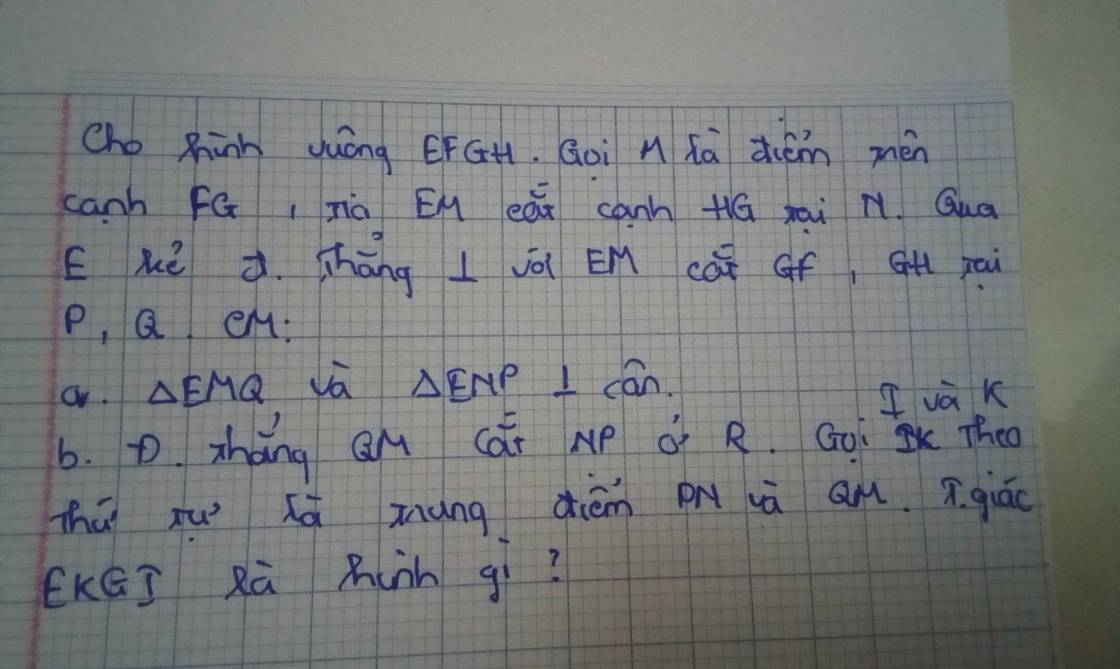 Cho hình vuông EFGH. Gọi M là điểm trên
cạnh FG, tia EM cắt cạnh HG tại N. Qua
E kẻ đ. thẳng ⊥ với EM cắt GF, GH tại
P, Q. CM:
a. ΔEMQ và ΔENP ⊥ cân.
I và K
b. Đ. thẳng QM cắt NP ở R. Gọi IK theo
thứ tự là trung điểm PN và QM. T.giác
EKGI là hình gì?